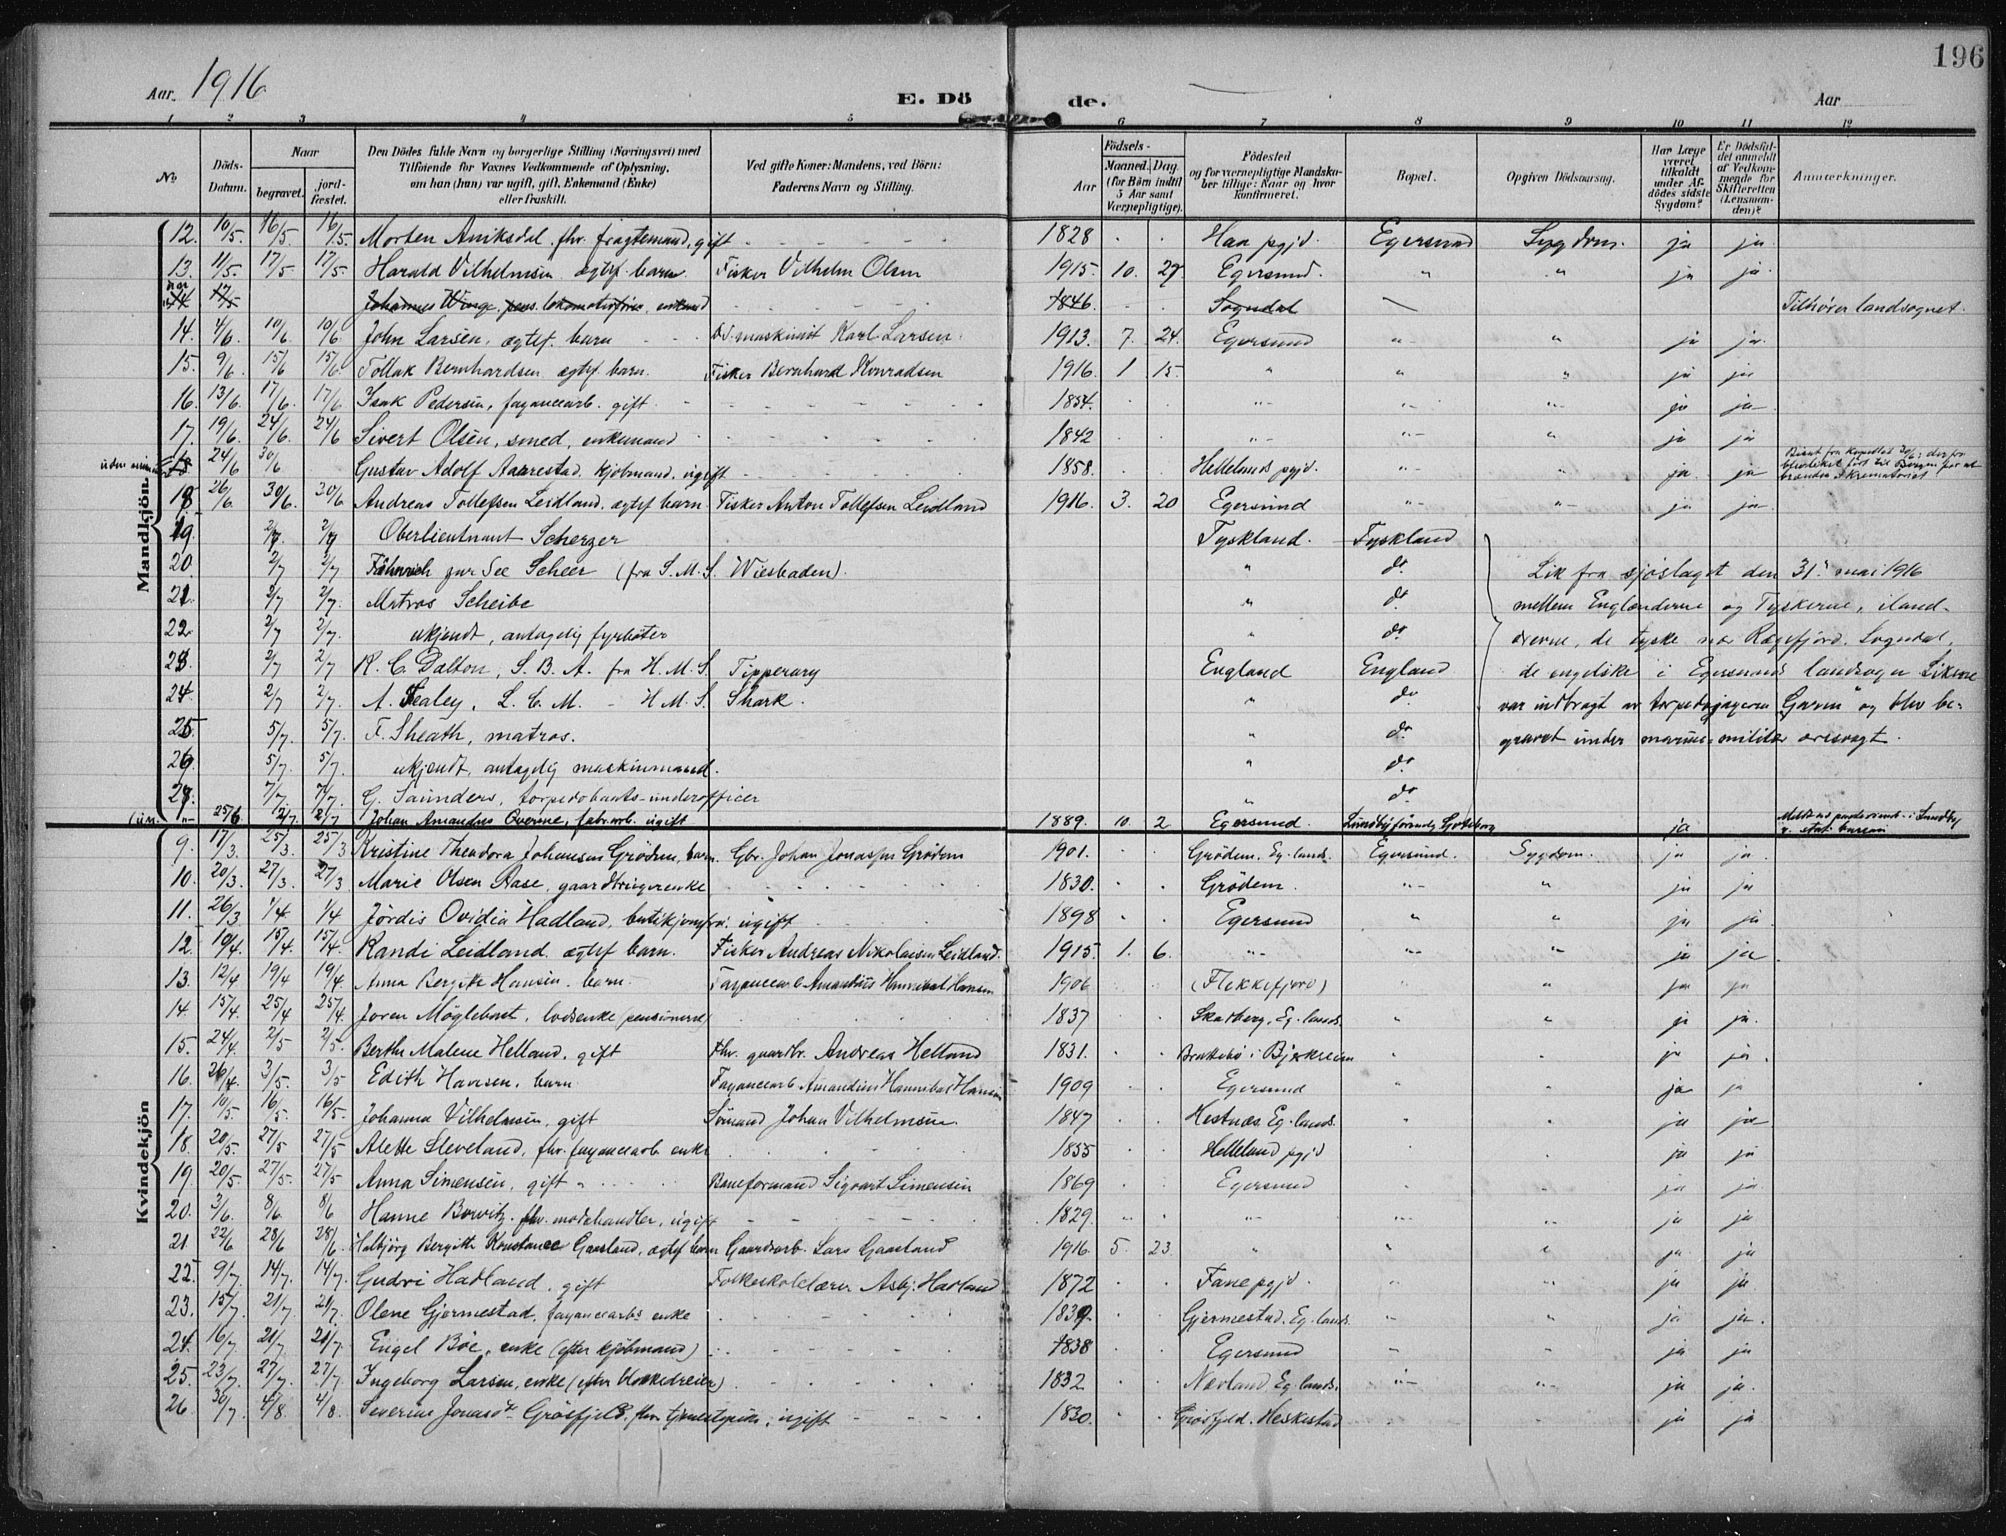 196
Aar. 1916
E. Dö de.
Aar
1 2 3 4 5 6 7 8 9 10 11 12
No.
Döds-Datum.
Naar
begravet.
jord-fæstet.
Den Dödes fulde Navn og borgerlige Stilling (Næringsvei) med
Tilföiende for Voxnes Vedkommende af Oplysning,
om han (hun) var ugift, gift, Enkemand (Enke)
eller fraskilt.
Ved gifte Koner: Mandens, ved Börn:
Faderens Navn og Stilling.
Födsels-
Aar
Maaned. Dag.
(for Börn indtil
5 Aar samt
Værnepligtige).
Födested
og for værnepligtige Mandska-
ber tillige: Naar og hvor
konfirmeret.
Bopæl.
Opgiven Dödsaarsag.
Har Læge
været
tilkaldt
under Af-
dödes sidste
Sygdom?
Er Dödsfal-
det anmeldt
af Vedkom-
mende for
Skifteretten
(Lensman-
den)?
Anmærkninger.
Mandkjön.
12. 10/5. 16/5 16/5. Morten Aniksdal, fhv. fragtemand, gift 1828 Haa pgjd. Egersund Sygdom. ja ja
13. 11/5. 17/5 17/5 Harald Vilhelmsen ægtef. barn Fisker Vilhelm Olsen 1915. 10. 27. Egersund. " " ja ja
14 Johannes Winge, pens. lokomotivfører, enkemand 1846. Sogndal Tilhører landsognet.
14. 4/6. 10/6 10/6 John Larsen, ægtef. barn maskinist Karl Larsen. 1913. 7. 24. Egersund " " ja ja
15. 9/6. 15/6 15/6. Tollak Bernhardsen ægtef. barn. Fisker Bernhard Konradsen 1916 1 15. " " " ja ja
16. 13/6. 17/6. 17/6 Isak Pedersen, fayancearb. gift 1854. " " " ja ja
17. 19/6. 24/6. 24/6 Sivert Olsen, smed, enkemand 1842 " " " ja ja
24/6 30/6 Gustav Adolf Aarrestad, kjøbmand, ugift 1858. Hellelands pgjd. " " ja ja
18 26/6. 30/6. 30/6 Andreas Tollefsen Leidland, ægtef. barn Fisker Anton Tollefsen Leidland 1916. 3. 20 Egersund " " ja ja
19. 2/7. 2/7 Oberlieutnant Scherzer Tyskland. Tyskland
20. 2/7 2/7. Fähnrich zur See Scheer (fra S.M.S. Wiesbaden). " do. Lik fra sjøslaget den 31. mai 1916
21. 2/7 2/7. Matros Scheibe " do mellem Englænderne og Tyskerne, iland-
22. 2/7 2/7. ukjendt, antagelig fyrbøter " do. drevne, de tyske nær Rægefjord, Sogndal,
23. 2/7 2/7 R. C. Dalton, S. B. A. fra H.M.S. Tipperary England England de engelske i Egersunds landsogn. Likene
24. 2/7 2/7. A. Sealey, L. C. M. - H.M.S. Shark. " do var indbragt av torpedojageren "Garm" og blev be-
25 5/7. 5/7. F. Sheath, matros. " do. gravet under marine-militær æresvagt.
26. 5/7. 5/7. ukjendt, antagelig maskinmand. " do.
27. 7/7 7/7. G. Saunders, torpedobaats-underofficer " do.
25/6 2/7. 2/7 Johan Amandus Overne, fabr.arb. ugift 1889. 10. 2 Egersund. ja
Kvindekjön
9. 17/3. 25/3. 25/3 Kristine Theodora Johansen Grødem, barn Gbr. Johan Jonassen Grødem 1901. Grødem, Eg. lands. Egersund. Sygdom. ja ja
10. 20/3. 27/3. 27/3 Marie Olsen Aase, gaardbrugerenke 1830. Grødem. " " ja ja
11. 26/3 1/4. 1/4 Jørdis Ovidia Hadland, butikjomfru. ugift 1898 Egersund " " ja ja
12. 10/4. 15/4. 15/4. Randi Leidland ægtef. barn. Fisker Andreas Nikolaisen Leidland. 1915. 1. 6. " " " ja ja
13. 12/4 19/4 19/4 Anna Bergitte Hansen. barn. Fayancearb. Amandius Hannibal Hansen 1906 (Flekkefjord) " " ja ja
14 15/4. 25/4 25/4. Joren Møglebost, lodsenke pensioneret 1837 Skadberg, Eg. lands. " " ja ja.
15. 24/4. 2/5 2/5. Berthe Malene Helland, gift fhv. gaardbr. Andreas Helland 1831. Brattebø i Bjerkreim " " ja ja.
16. 26/4. 3/5. 3/5 Edith Hansen, barn Fayancearb. Amandius Hannibal Hansen 1909 Egersund ja ja
17. 10/5. 16/5. 16/5. Johanna Vilhelmsen, gift Sømand Johan Vilhelmsen. 1847 Hestnæs. Eg. lands. " " ja ja
18. 20/5. 27/5 27/5 Alette Sleveland, fhv. fayancearb. enke 1855 Helleland pgjd ja ja
19. 20/5. 27/5. 27/5. Anna Simensen, gift Baneformand Sigvart Simensen 1869 Egersund ja ja
20. 3/6. 8/6. 8/6 Hanne Bowitz. fhv. modehandler, ugift 1829. " " ja ja
21 22/6 28/6 28/6. Bergitte Konstance Gaasland, ægtef. barn Gaardsarb. Lars Gaasland 1916. 5. 23. " " " ja ja
22. 9/7. 14/7. 14/7. Gudri Hadland, gift Folkeskolelærer Asbj. Hadland 1872 Fane pgjd. " " ja ja.
23. 15/7. 21/7. 21/7. Olene Gjermestad, fayancearbs enke 1839. Gjermestad. Eg. lands. " " ja ja.
24. 16/7. 21/7. 21/7. Engel Bøe, enke (efter kjøbmand) 1838 Egersund " " ja ja
25. 23/7. 27/7. 27/7. Ingeborg Larsen, enke (efter blokkedreier) 1832 Nævland, Eg. lands. " " ja ja.
26. 30/7. 4/8 4/8. Severine Jonasdtr. Grøsfjeld, fhv. tjenestepike, ugift 1830. Grøsfjeld. Heskestad " " ja ja